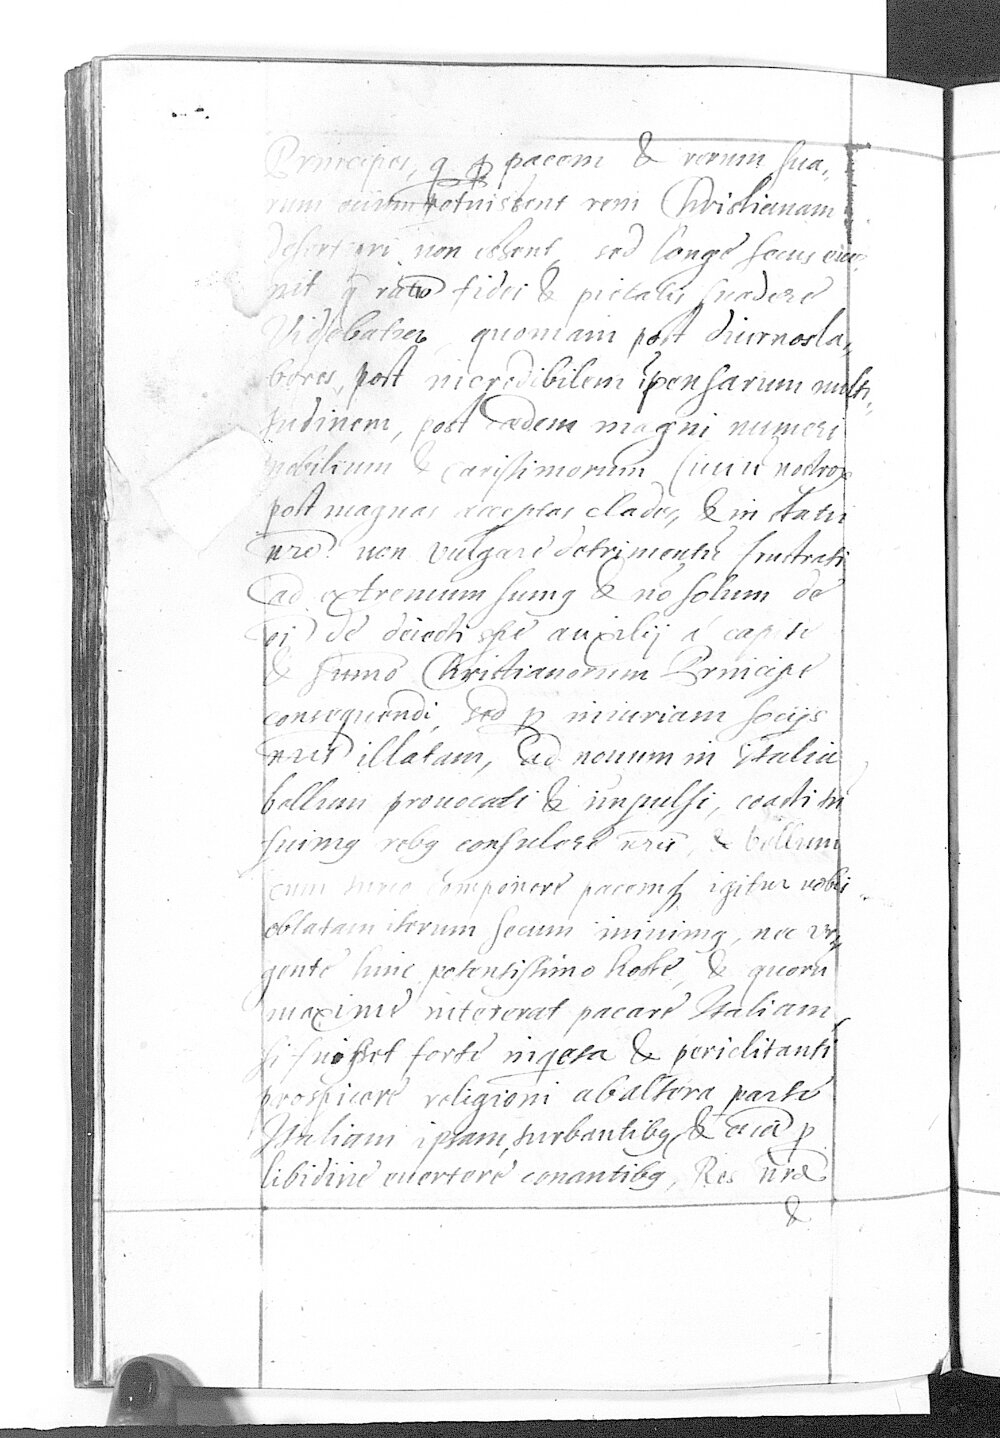 Principes, q̃ p pacem & rerum sua,,
rum retinuissent rem Christianam
deserturi non essent, sed longe secus eue,,
nit q̃ ratio fidei & pietatis suadere
Videbatur, quoniam post diurnos la,,
bores, post incredibilem īpensarum multi,,
tudinem, post cædem magni numeri
nobilium & carissimorum Ciuiū nostroꝝ
post magnas acceptas clades, & in statu
nr̃o non vulgare detrimentū frustrati
ad extremum sumꝰ & nō solum de
de deiecti spe auxilij a capite
& sum̃o Christianorum Principe
consequendi, sed p iniuriam socijs
nr̃is illatam, ad nouum in Italia
bellum prouocati & impulsi, coacti
suimꝰ rebꝰ consulere nr̃is, & bellum
cum turca componere pacemq̃ igitur nobis
oblatam iterum secum iniuimꝰ, nec vr,,
gente hinc potentissimo hoste, & quorū
maxime intererat pacare Italiam,
si fuisset forte inqeta & periclitanti
prospicere religioni ab altera parte
Italiam ipsam turbantibꝰ & etiā p
libidine euertere conantibꝰ, Res nr̃a
&